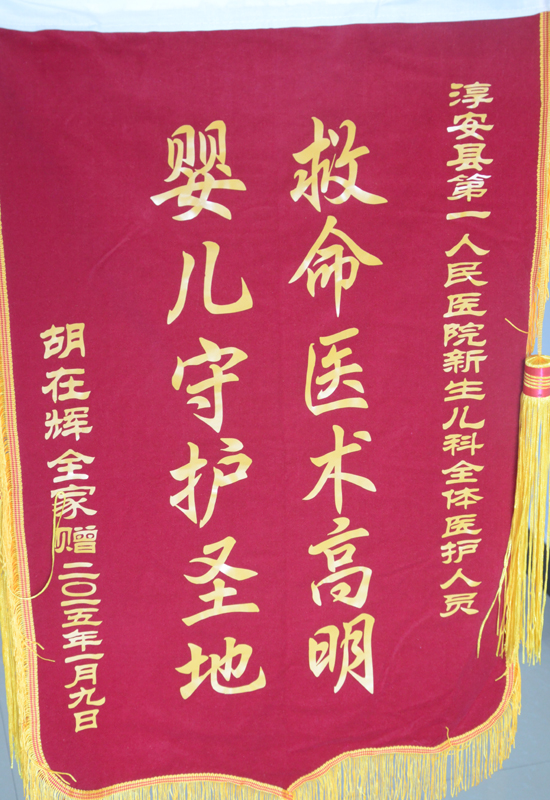 淳安县第一人民医院新生儿科全体医护人员
救命医术高明
婴儿守护圣地
胡在辉全家赠二〇二五年一月九日